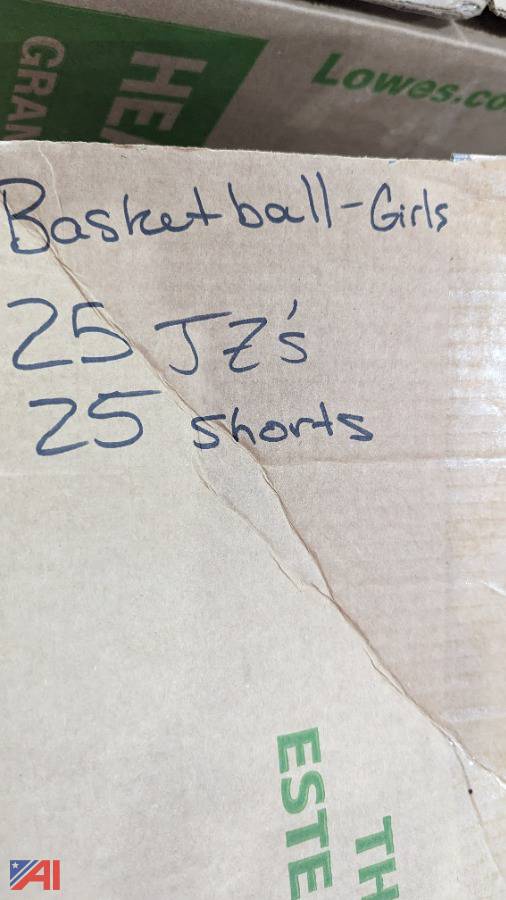 HEA
GRAN
Lowes.co
Basketball-Girls
25 JZ's
25 shorts
ESTE
TH
AI